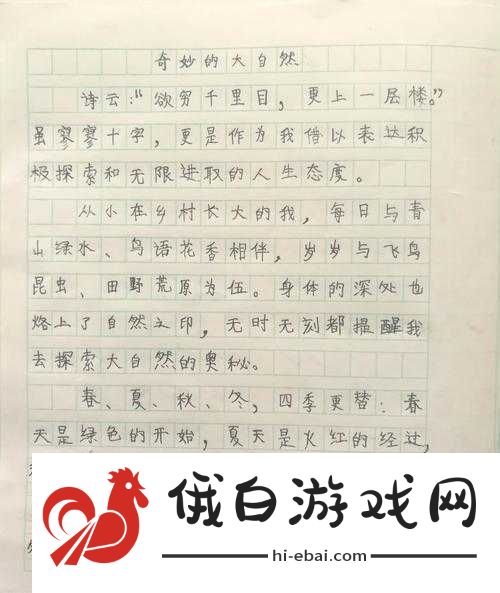 奇妙的大自然
诗云:“欲穷千里目，更上一层楼。”
虽寥寥十字，更是作为我借以表达积
极探索和无限进取的人生态度。
从小在乡村长大的我，每日与青
山绿水、鸟语花香相伴，岁岁与飞鸟
昆虫、田野荒原为伍。身体的深处也
烙上了自然之印，无时无刻都提醒我
去探索大自然的奥秘。
春、夏、秋、冬，四季更替：春
天是绿色的开始，夏天是火红的经过，
俄白游戏网
hi-ebai.com